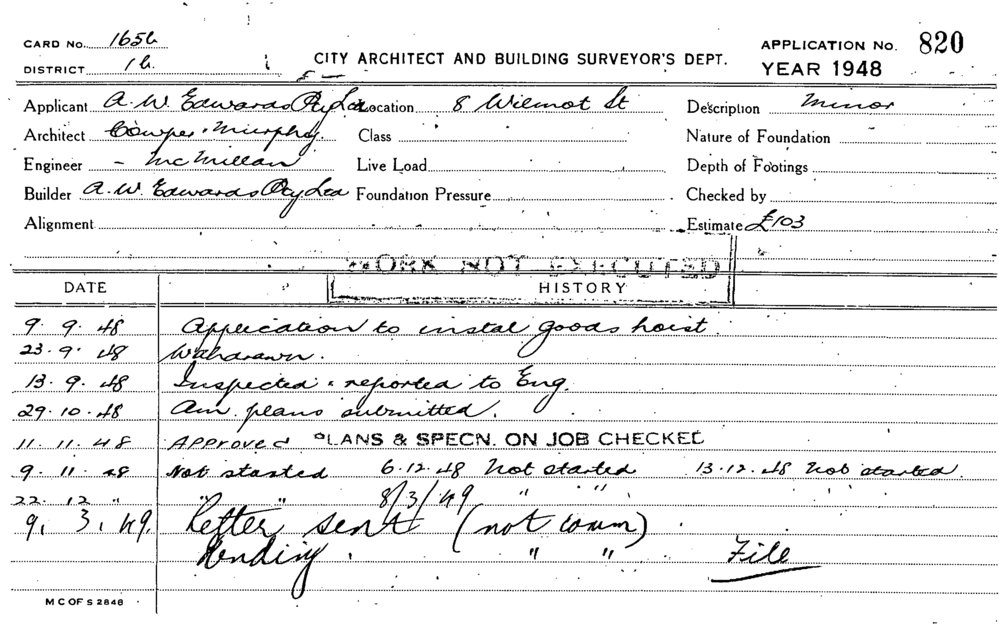 CARD No. 1656
APPLICATION No. 820
DISTRICT 16.
CITY ARCHITECT AND BUILDING SURVEYOR'S DEPT.
YEAR 1948
Applicant A.W. Edwards Pty Ltd Location 8 Wilmot St Description Minor
Architect Cowper, Murphy Class Nature of Foundation
Engineer - McMillan Live Load Depth of Footings
Builder A.W. Edwards Pty Ltd Foundation Pressure Checked by
Alignment Estimate £103
WORK NOT EXECUTED
DATE HISTORY
9. 9. 48 Application to instal goods hoist.
23. 9. 48 Withdrawn.
13. 9. 48 Inspected & reported to Eng.
29. 10. 48 Am. plans submitted.
11. 11. 48 Approved PLANS & SPECN. ON JOB CHECKED
9. 11. 48 Not started 6.12.48 Not started 13.12.48 Not started
22. 12 " " " 8/3/49 " "
9. 3. 49. Letter sent (not comm)
Pending. " " File
M C OF S 2848